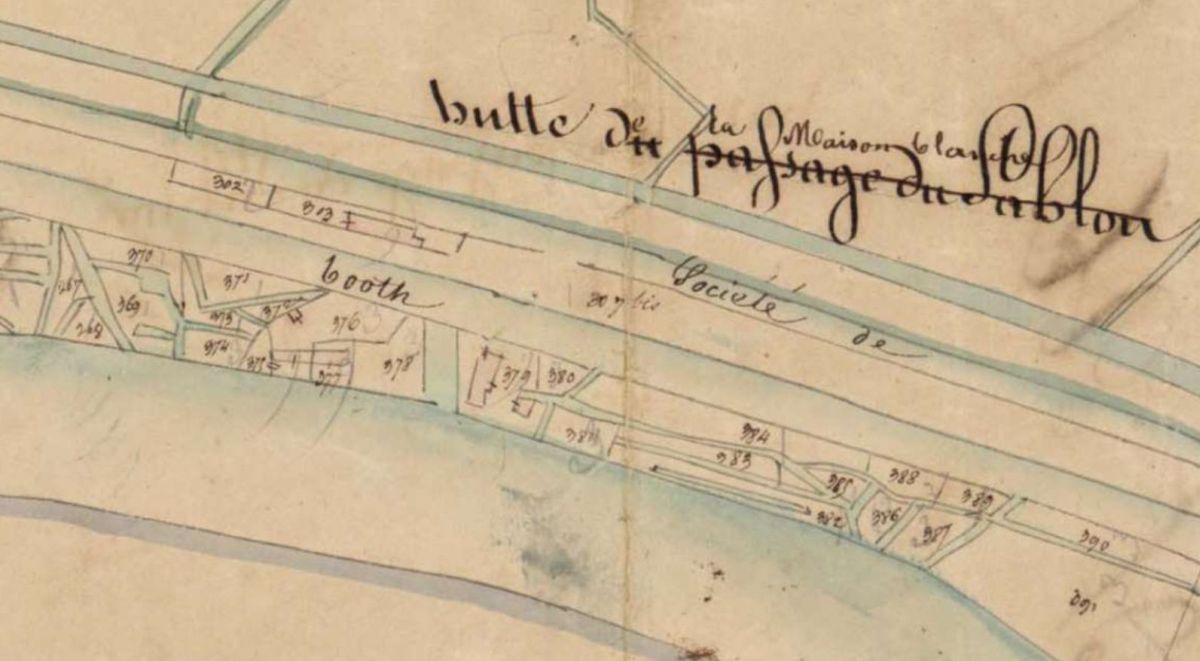 butte de la Maison blanche
du passage du Sablon
302
303
booth
Société de
307 bis
370
371
267
369
268
373
372
374
375
376
377
378
379
380
381
384
383
382
385
386
387
388
389
390
391